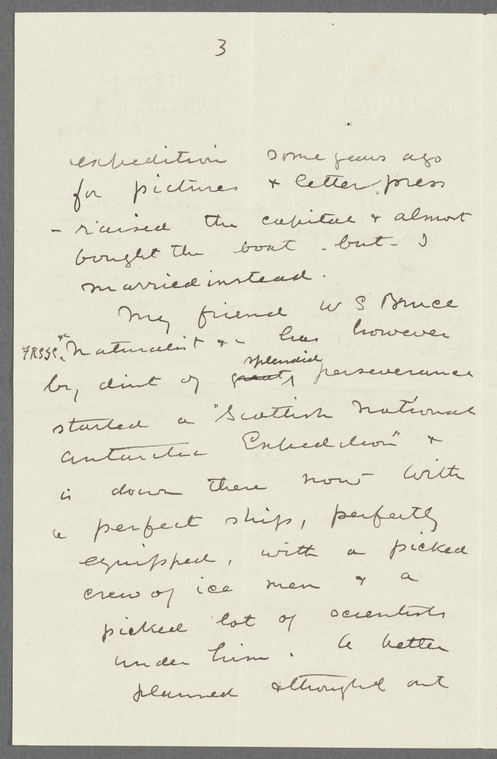 3
expedition some years ago
for pictures & letter press
- raised the capital & almost
bought the boat - but - I
married instead.
My friend W S Bruce
FRSGS &c Naturalist & - has however
by dint of great splendid perseverance
started a "Scottish National
Antarctic Expedition" &
is down there now with
a perfect ship, perfectly
equipped, with a picked
crew of ice men & a
picked lot of scientists
under him. A better
planned & thought out